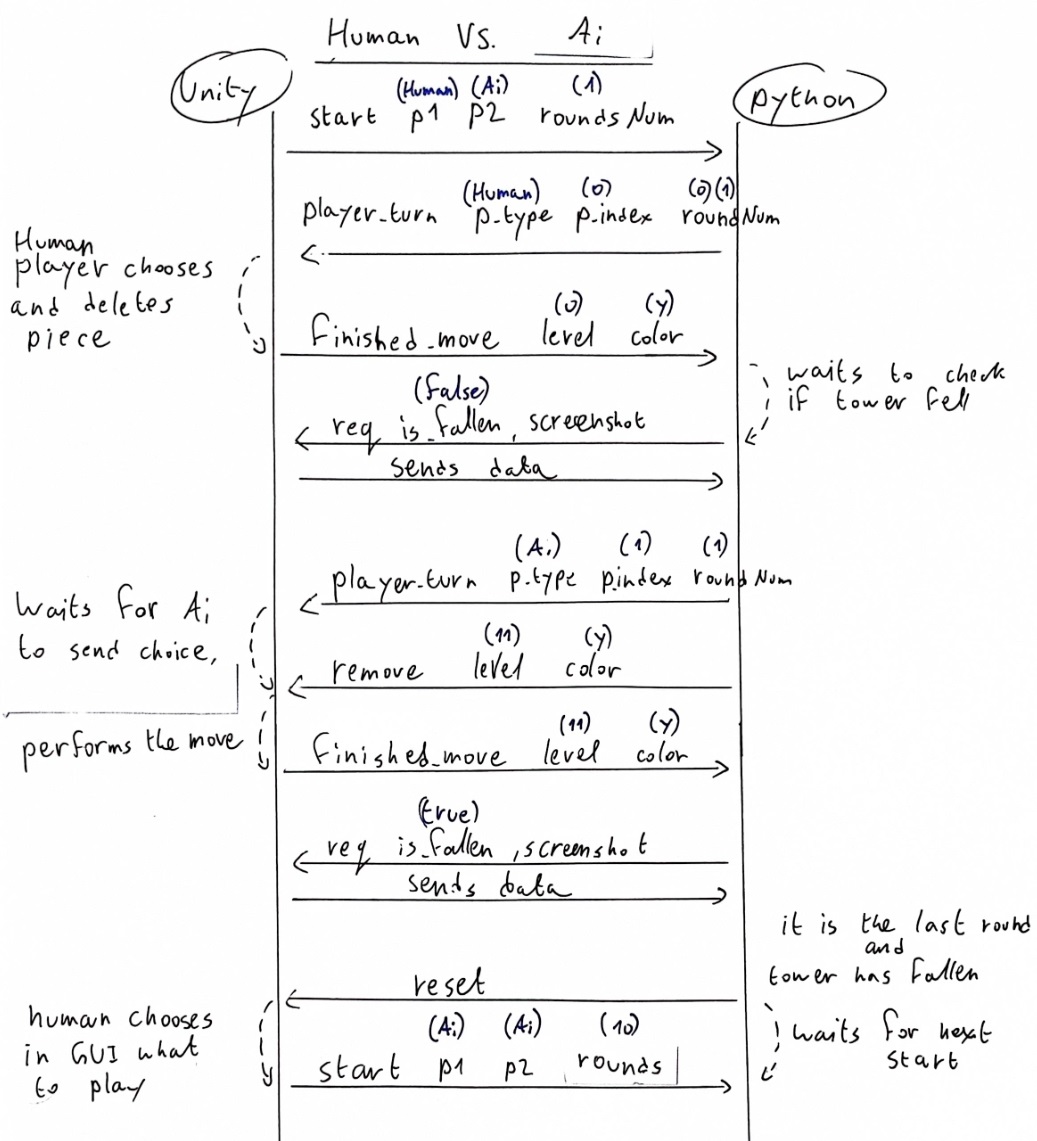 Human Vs. Ai
Unity
python
(Human) (Ai) (1)
start p1 p2 roundsNum
(Human) (0) (0)(1)
player_turn p_type p_index roundNum
Human
player chooses
and deletes
piece
(0) (y)
finished_move level color
waits to check
if tower fell
(false)
req is_fallen, screenshot
sends data
(Ai) (1) (1)
player_turn p_type p_index roundNum
waits for Ai
to send choice,
(11) (y)
remove level color
performs the move
(11) (y)
finished_move level color
(true)
req is_fallen, screenshot
sends data
it is the last round
and
tower has fallen
reset
human chooses
in GUI what
to play
waits for next
start
(Ai) (Ai) (10)
start p1 p2 rounds